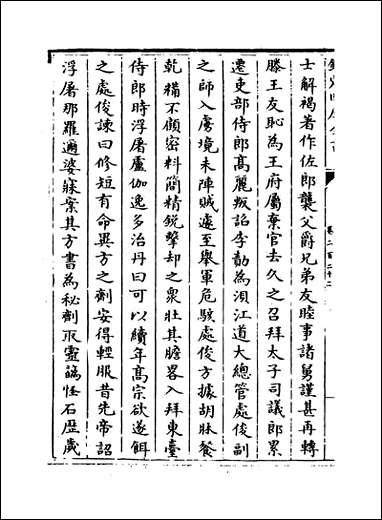 欽定四庫全書
卷二百二十二
士解褐著作佐郎襲父爵兄弟友睦事諸舅謹甚再轉
滕王友恥為王府屬棄官去久之召拜太子司議郎累
遷吏部侍郎髙麗叛詔李勣為浿江道大總管處俊副
之師入虜境未陣賊遽至舉軍危駭處俊方據胡牀餐
乾糒不顧密料簡精銳擊却之衆壯其膽畧入拜東臺
侍郎時浮屠盧伽逸多治丹曰可以續年髙宗欲遂餌
之處俊諫曰修短有命異方之劑安得輕服昔先帝詔
浮屠那羅邇婆寐案其方書為秘劑取靈藥怪石歴歳